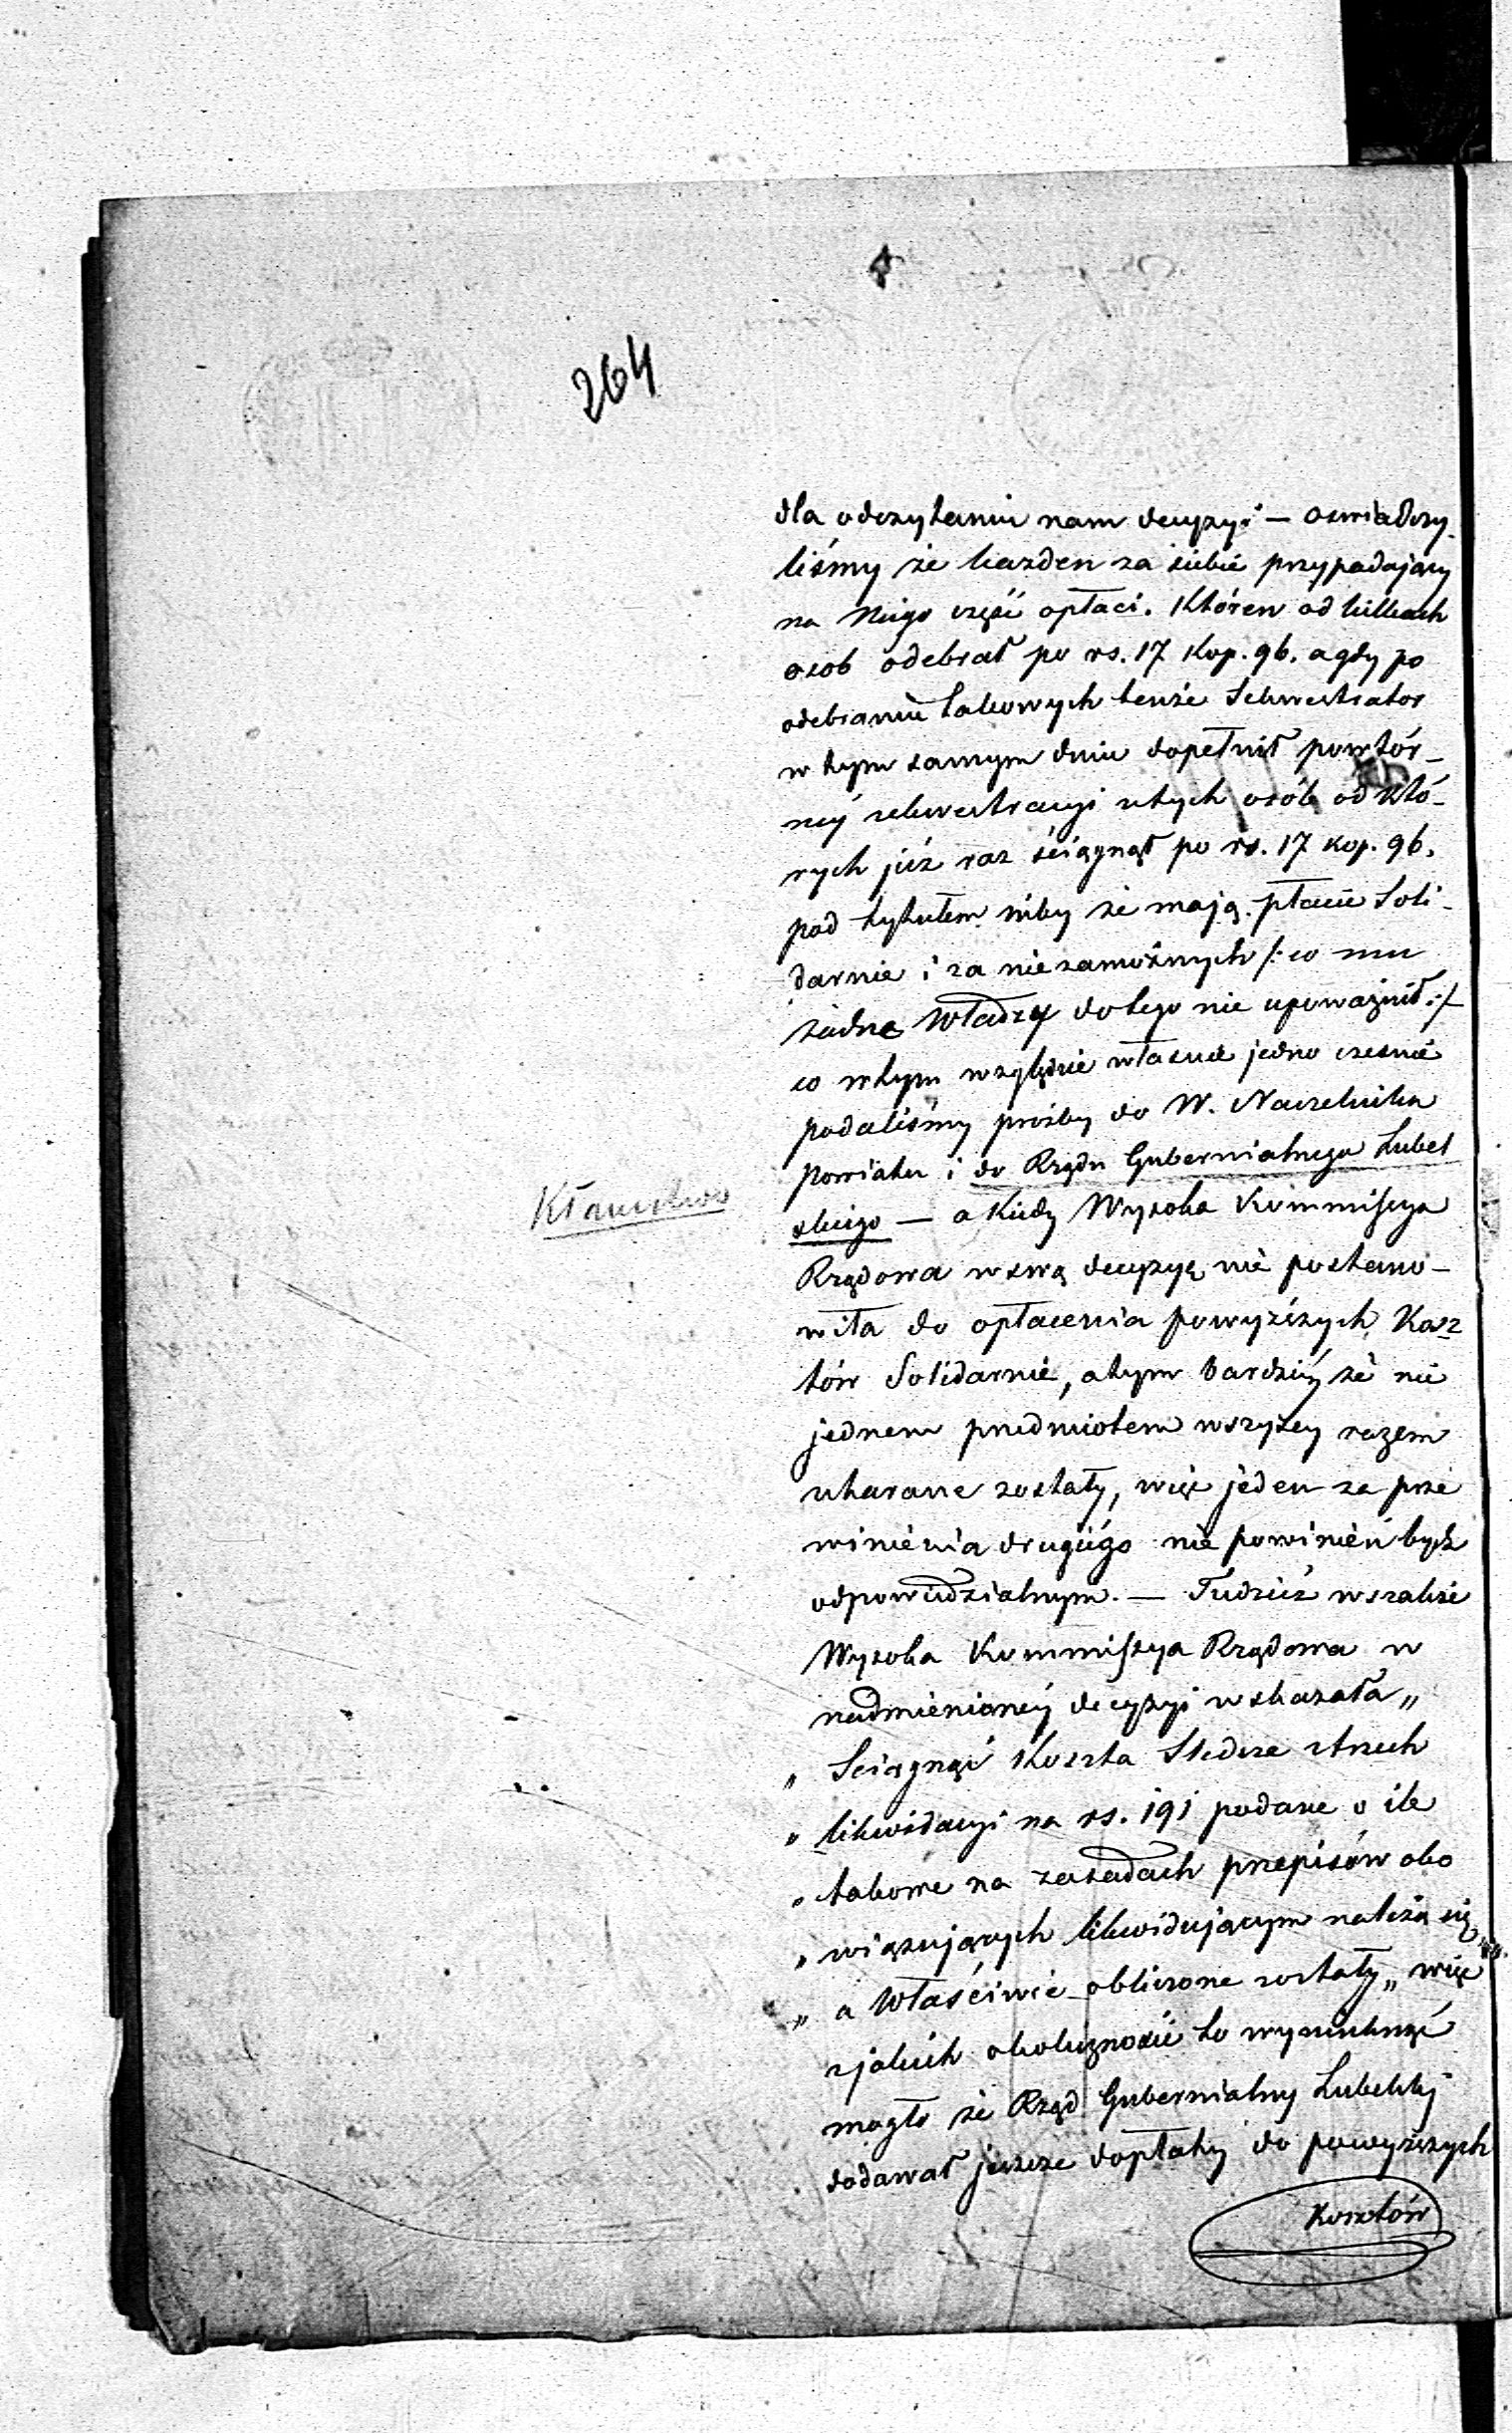 264
dla odczytaniu nam decyzyi — oswiadczy
liśmy że kazden za siebie przypadający
na Niego część opłaci. Któren od kilkach
osob odebrał po rs. 17 Kop. 96. a gdy po
odebraniu takowych tenże Sekwestrator
w tym samym dniu dopełnił powtór–
néj sekwestracyi u tych osób od któ–
rych już raz ściągnął po rs. 17 kop. 96.
pod tytułem niby że mają płacić Soli–
darnie i za niezamożnych /: co mu
żadna Władzy do tego nie upoważnił :/
co w tym względzie własnie jedno czesnie
podaliśmy prośby do W. Naczelnika
powiatu i do Rządu Gubernialnego Lubel
skiego — a Kiedy Wysoka Kommissya
Rządowa w swą decyzyą nie postano–
wiła do opłacenia powyższych Kosz
tów Solidarnie, a tym bardziéj że nie
jednem przedmiotem wszyscy razem
ukarane zostały, więc jeden za prze
winienia drugiégo nie powinień bydź
odpowiedzialnym. — Tudzież wszakże
Wysoka Kommissya Rządowa w
nadmienionéj decyzyi wskazała „
„ Sciągnąć Koszta Sledcze z trzech
„ likwidacyi na rs. 191 podane o ile
„ takowe na zasadach przepisów obo
„ wiązujących likwidującym należą się
„ a Właściwie obliczone zostały „ więc
z jakich okoliczności to wyniknąć
mogło że Rząd Gubernialny Lubelski
dodawał jeszcze dopłaty do powyższych
Kosztów